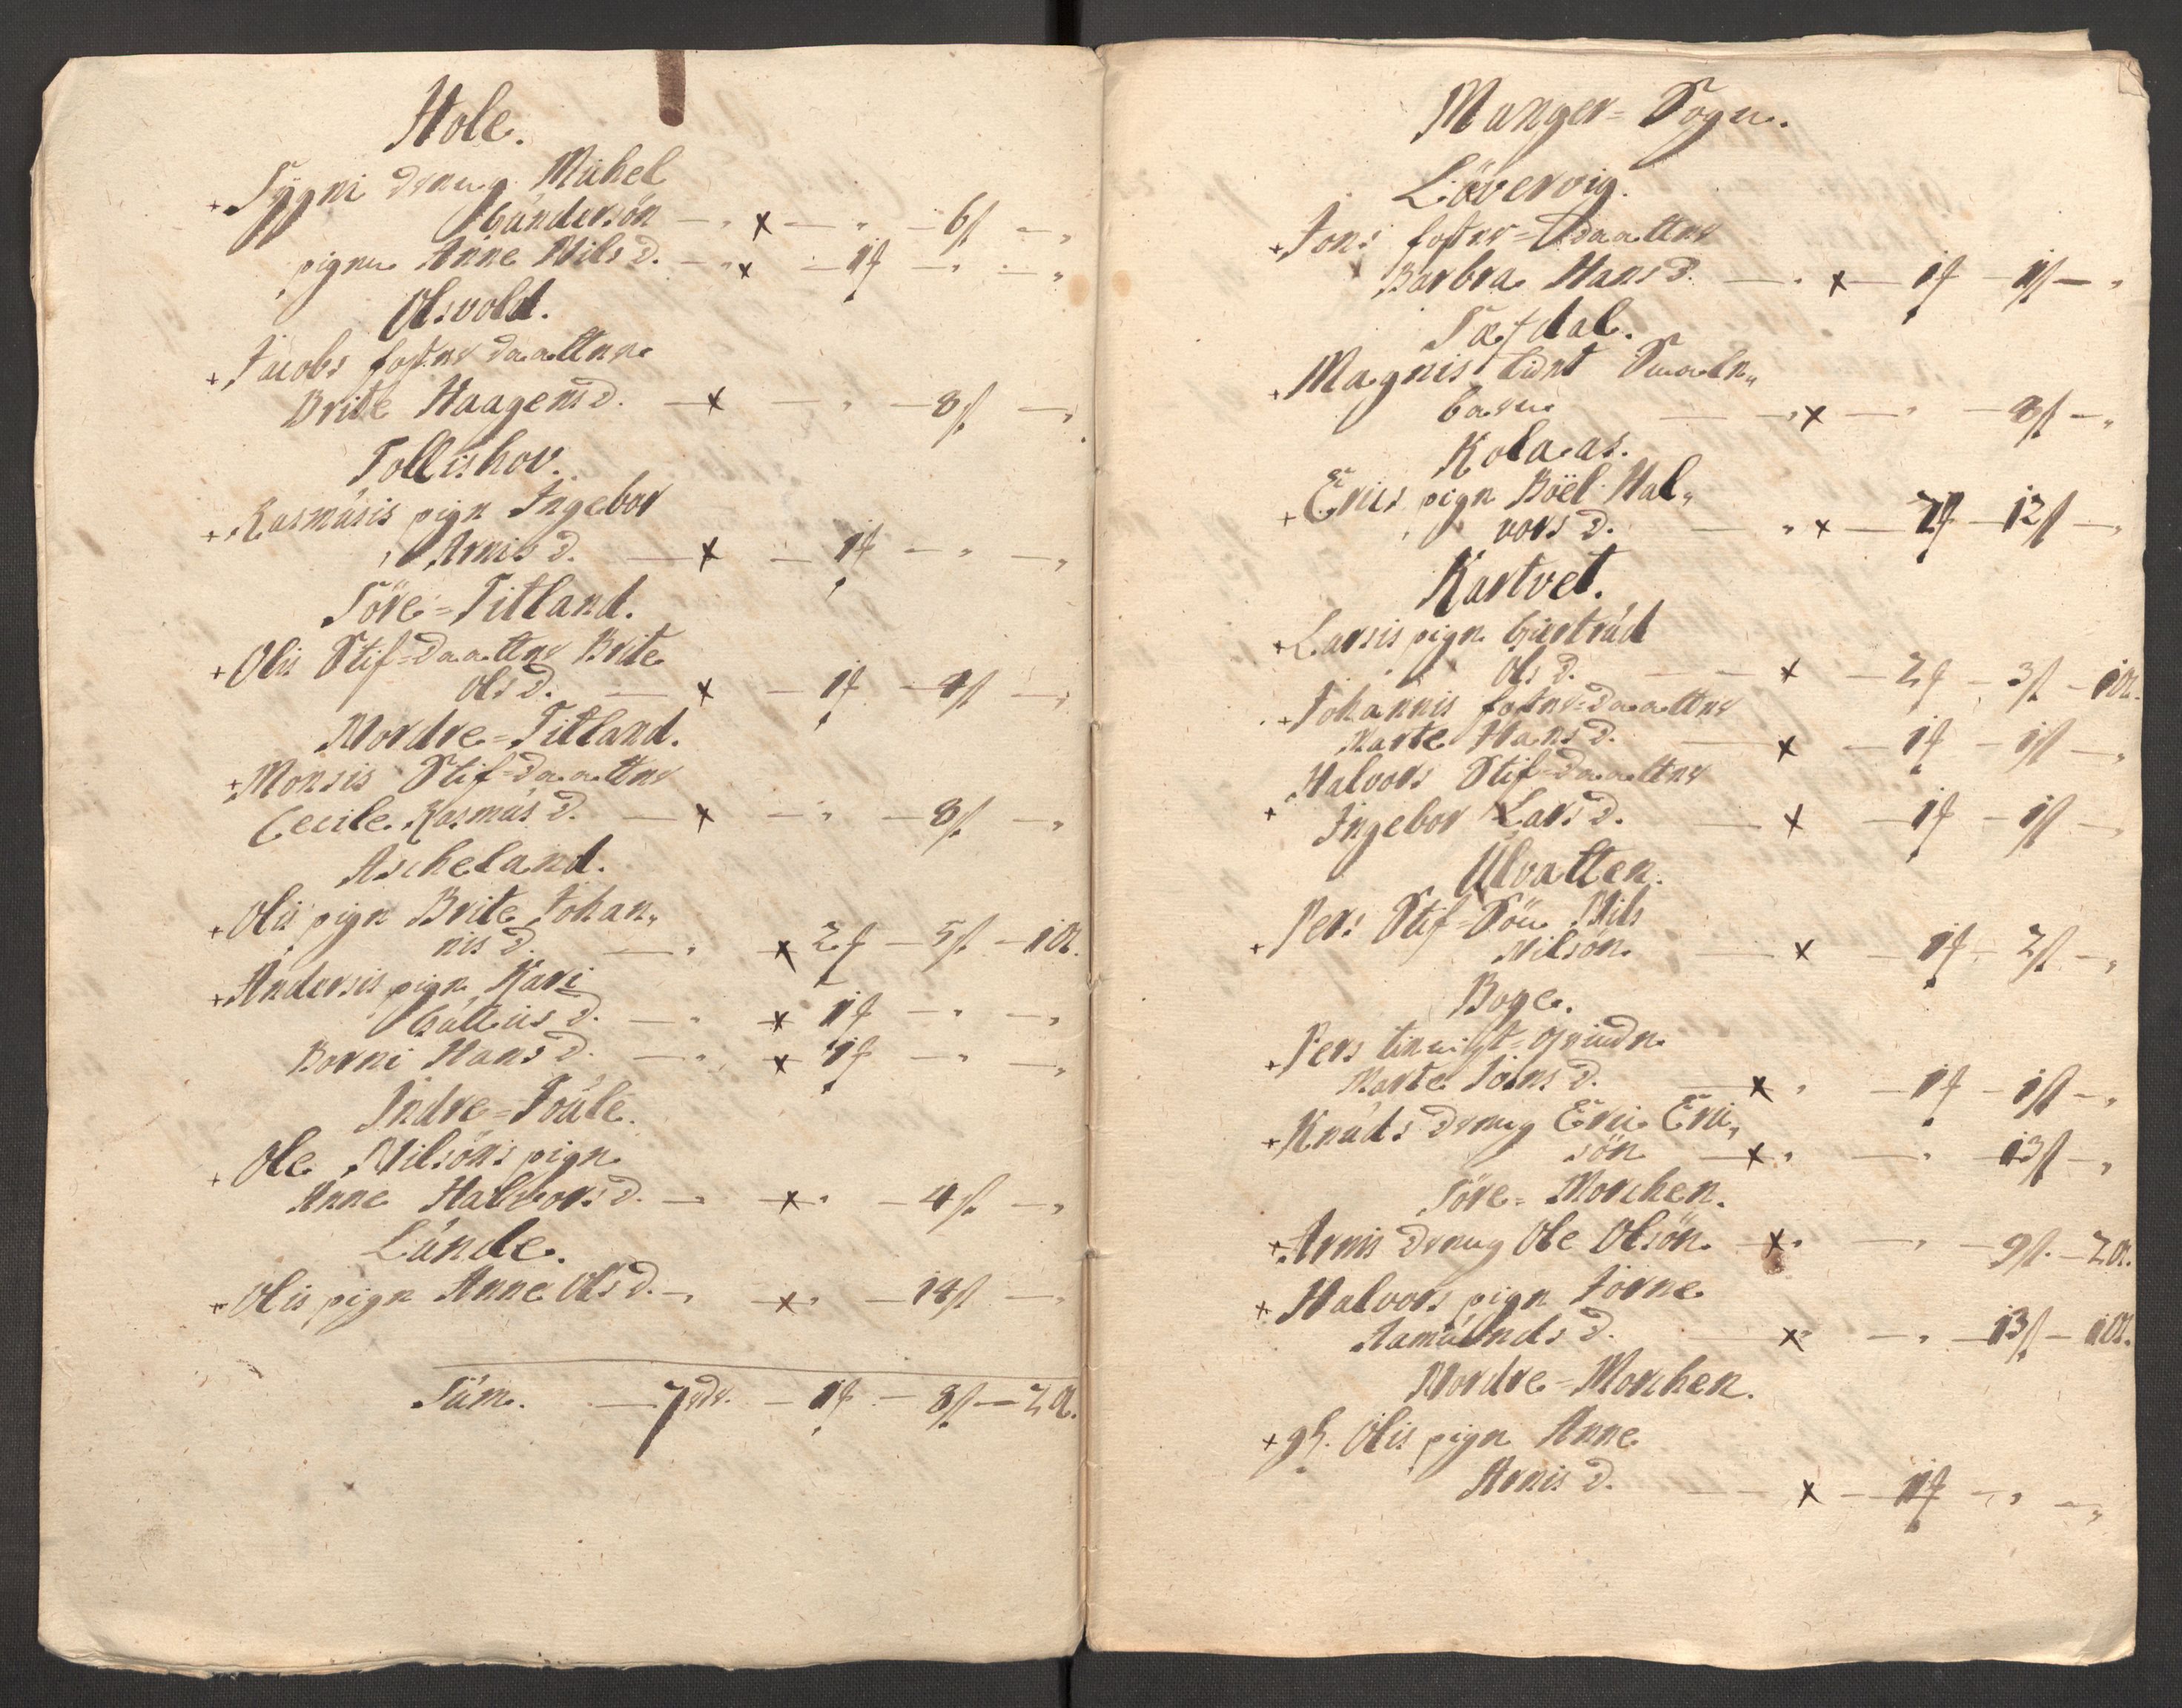 Hole.
+ Sygni dreng Michel
Gundersön – „ x – „ – 6ß – „
pigen Anne Nils d. – „ x – 1f – „ – „
Olsvold.
+ Jacobs foster daatter
Brite Haagens d. – x – „ – 8ß – „
Tollishov.
+ Rasmusis pign Ingebor
Arnis d. – x – 1f – „ – „
Söre=Titland.
+ Olis Stif=daatter Brite
Ols d. – x – 1f – 4ß – „
Nordre=Titland.
+ Monsis Stif=daatter
Cecile Rasmus d. – x – „ – 8ß – „
Ascheland.
+ Olis pign Brite Johan„
nis d. – „ x 2f – 5ß – 1
+ Andersis pign Kari
d. – „ x 1f – „ – „
Borni Hans d. – „ x 1f – „ – „
Indre=Foüle.
+ Ole Nilsöns pign
Anne Halvors d. – „ x „ – 4ß – „
Lünde.
+ Olis pign Anne Ols d. – „ – x „ – 14ß – „
Süm. – 7 rdr. – 1f – 8ß – 2
Manger=Sogn.
Lövervig.
+ Jons foster=daatter
Barbra Hans d. – „ x – 1f – 1ß – „
Tæsdal.
+ Magnis
barn – „ x – „ – 8ß – „
Kolaas.
+ Erics pign Böel Hal„
vors d. – „ x – 2f – 12ß – „
Kartvet.
+ Larsis pign Giertrüd
Ols d. – x – 2f – 3ß – 1
+ Johannis foster=daatter
Marte Hans d. – x – 1f – 1ß – „
Halvors Stif=daatter
+ Ingebor Lars d. – x – 1f – 1ß – „
Ulvatten.
+ Pers Stif=Sön Nils
Nilsön. – x – 1f – 2ß – „
Boge.
+ Pers
Marte Joens d. – x „ – 1f – 1ß – „
+ Knüds dreng Eric Eric„
sön – x „ – „ 13ß – „
Söre=Morchen.
+ Arnis dreng Ole Olsön – x „ – „ – 9ß – 2
+ Halvors pign Jörne
Aamünds d. – x – „ – 13ß – 1
Nordre=Morchen.
+ gl. Olis pign Anne
Arnis d. – x – 1f – „ – „